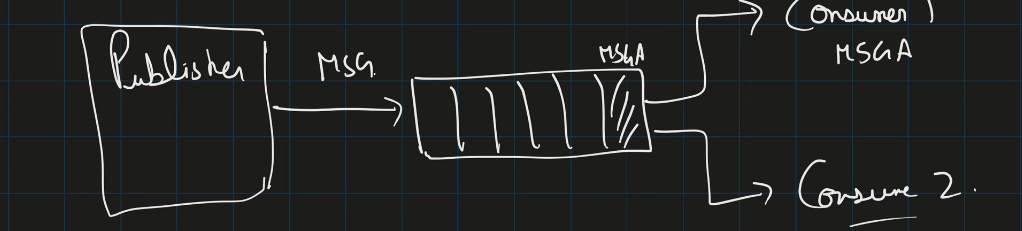 Publisher
MSG.
MSGA
Consumer 1
MSGA
Consume 2.